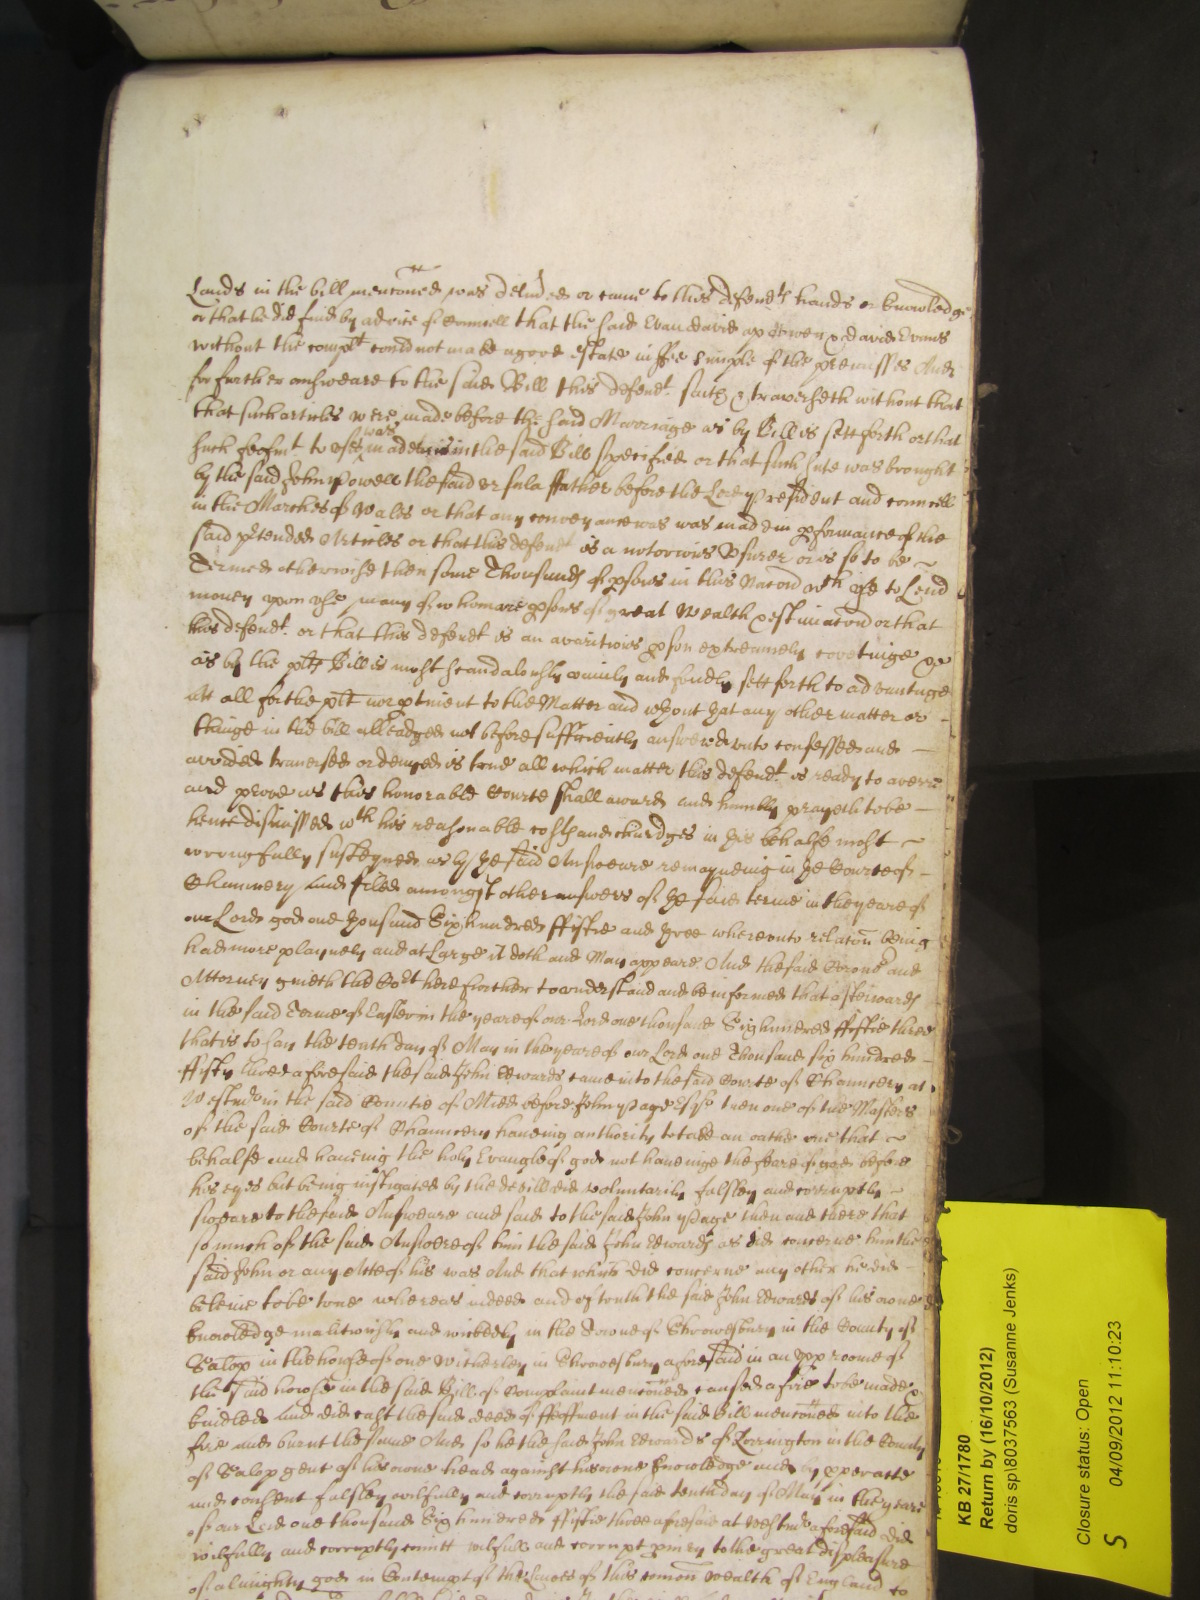 Lands in the bill menconed was delived or came to this defendts hands or knowledge
or that he did find by advice of Councell that the said Evan david ap Owen & david Evans
without the complt could not make a good estate in ffee simple of the premisses And
for further answeare to the said Bill this defendt saith & traverseth without that
that such articles were made before the said Marriage as by Bill is sett forth or that
such feofmt to uses was made as in the said Bill specified or that such sute was brought
by the said John Powell the said father before the Lord President and councell
in the Marches of Wales or that any conveyance was was made in pformance of the
said ptended Articles or that this defendt is a notorious Usurer or is so to be
Termed otherwise then some Thousands of psons in this Nacon wch use to Lend
money upon use many of whom are psons of great Wealth & estimacon or that
this defendt or that this defendt is an avaritious pson extreamely covetinge &
as by the plts Bill is most scandalously vainely and fondly sett forth to advantage
att all for the plt nor ptinent to the Matter and wthout that any other matter or
thinge in the bill alleadged not before sufficiently answered unto confessed and
avoided traversed or denyed is true all which matter this defendt is ready to averre
and prove as this honorable Courte shall award and humbly prayeth to be
hence dismissed wth his reasonable costs and chardges in this behalfe most
wrongfully susteyned as by the said Answeare remayneing in the Courte of
Chauncery and filed amongst other answers of the said terme in the yeare of
our Lord god one thousand Six hundred ffiftie and three whereunto relacon being
had more playnely and at Large it doth and May appeare And the said Coroner and
Attorney giveth the Cort here further to understand and be informed that afterwards
in the said Terme of Easter in the yeare of our Lord one thousand Six hundred ffiftie three
that is to say the tenth day of May in the yeare of our Lord one Thousand six hundred
ffifty three aforesaid the said John Edwards came into the said Courte of Chauncery at
Westmr in the said Countie of Midd before John Page Esqr then one of the Masters
of the said Courte of Chauncery haveing authority to take an oathe in that
behalfe and haveing the holy Evangle of god not haveinge the feare of god before
his eyes but being instigated by the devill did voluntarily falsley and corruptly
sweare to the said Answeare and said to the said John Page then and there that
so much of the said Answere of him the said John Edwards as did concerne him the
said John or any Acte of his was And that which did concerne any other he did
beleive to be true whereas indeed and of truth the said John Edwards of his owne
knowledge malitiously and wickedly in the Towne of Shrowesbury in the County of
Salop in the house of one Witherley in Shrowesbury aforesaid in an upp roome of
the said howse in the said Bill of Complaint menconed caused a fire to be made &
kindled and did cast the said deed of ffeoffment in the said Bill menconed into the
fire and burnt the same And so he the said John Edwards of Lorrington in the County
of Salop gent of his owne head against his owne knowledge and by pper acte
and consent falsley wilfully and corruptly the said tenth day of May in the yeare
of our Lord one thousand Six hundred ffiftie three aforesaid at Westmr aforesaid did
wilfully and corruptly comitt wilfull and corrupt pjury to the great displeasure
of almighty god in Contempt of the Lawes of this comon Wealth of England to
KB 27/1780
Return by (16/10/2012)
doris sp\8037563 (Susanne Jenks)
Closure status: Open
S 04/09/2012 11:10:23